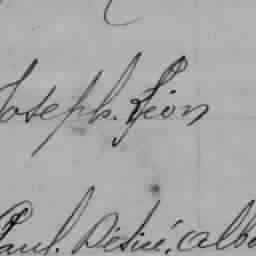 Joseph. Léon
Paul. Désiré. Albe